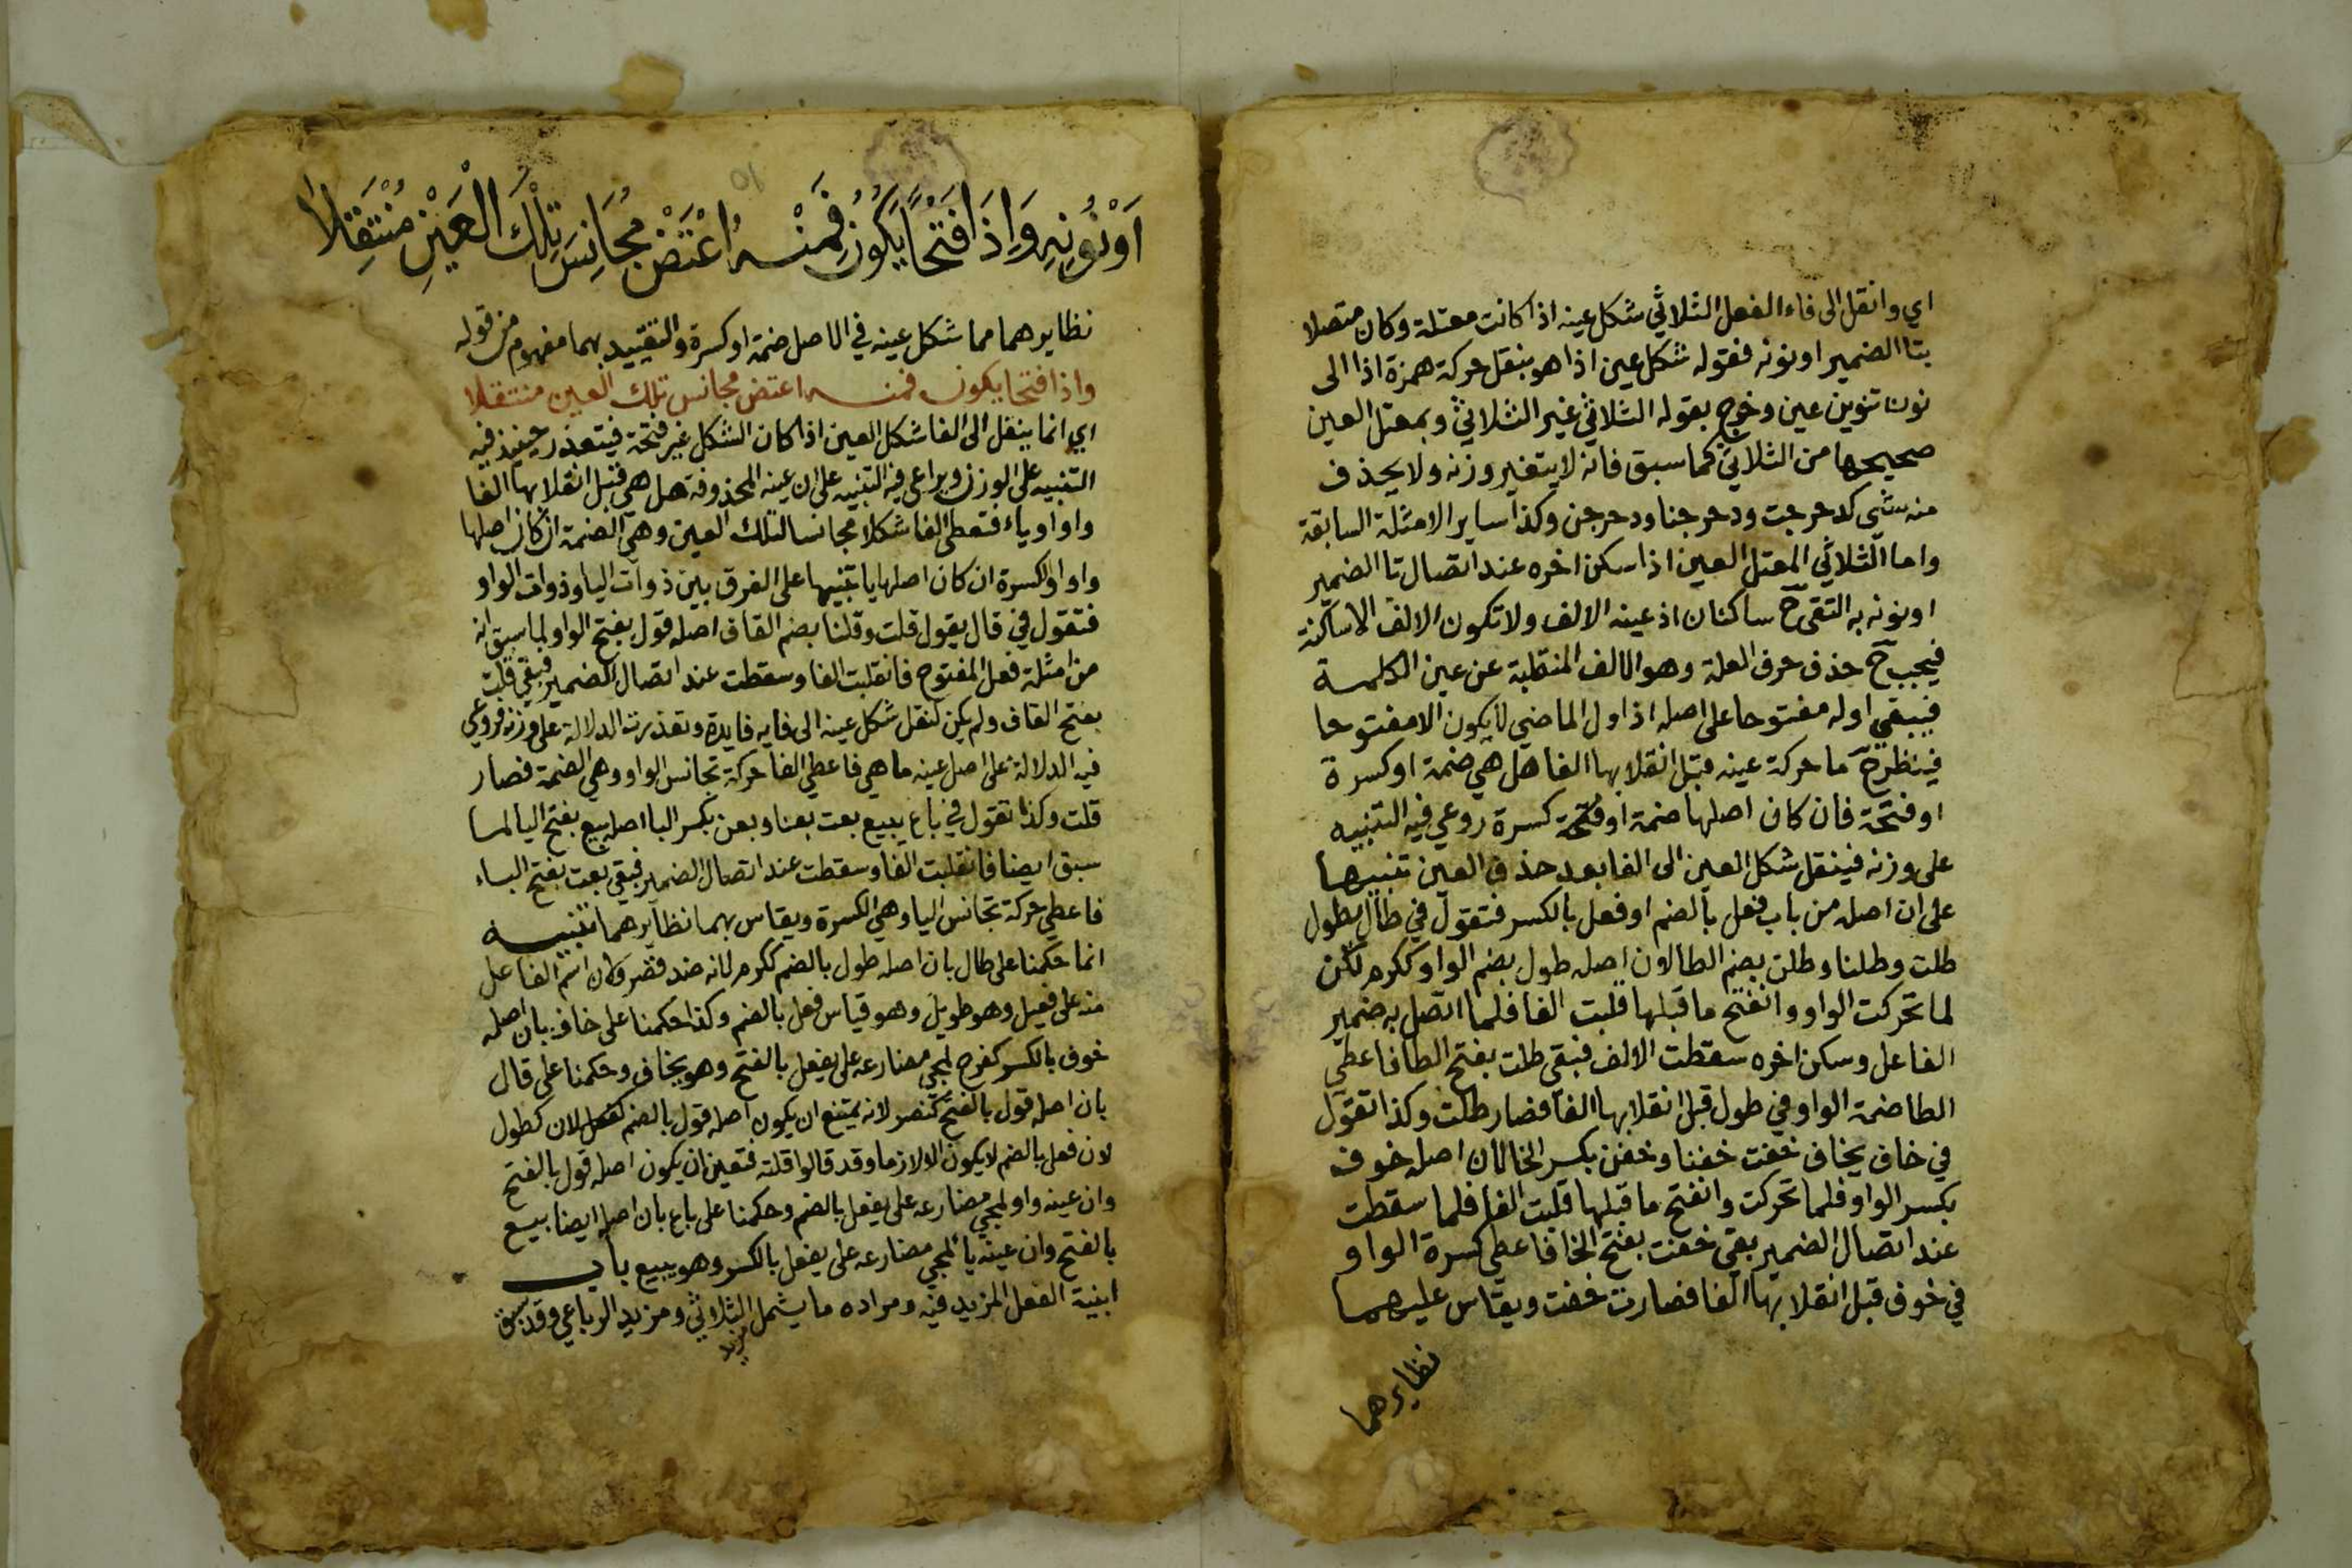 اي وانقل الى فاء الفعل الثلاثي شكل عينه اذا كانت معتلة وكان متصلا
بتا الضمير او نونه فقوله شكل عين اذا هو بنقل حركة همزة اذا الى
نون تنوين عين وخرج بقوله الثلاثي غير الثلاثي وبمعتل العين
صحيحها من الثلاثي كما سبق فانه لا يتغير وزنه ولا يحذف
منه شي كدحرجت ودحرجنا ودحرجن وكذا ساير الامثلة السابقة
واما الثلاثي المعتل العين اذا سكن اخره عند اتصال تا الضمير
او نونه به التقى ح ساكنان اذ عينه الالف ولا تكون الالف الا ساكنة
فيجب ح حذف حرف العلة وهو الالف المنقلبة عن عين الكلمة
فيبقي اوله مفتوحا على اصله اذ اول الماضي لا يكون الا مفتوحا
فينظر ح ما حركة عينه قبل انقلابها الفا هل هي ضمة او كسرة
او فتحة فان كان اصلها ضمة او فتحة كسرة روعي فيه التنبيه
على وزنه فينقل شكل العين الى الفا بعد حذف العين تنبيها
على ان اصله من باب فعل بالضم او فعل بالكسر فتقول في طال يطول
طلت وطلنا وطلن بضم الطا لان اصله طول بضم الواو ككرم لكن
لما تحركت الواو وانفتح ما قبلها قلبت الفا فلما اتصل به ضمير
الفاعل وسكن اخره سقطت الالف فبقي طلت بفتح الطا فاعطي
الطا ضمة الواو في طول قبل انقلابها الفا فصار طلت وكذا تقول
في خاف يخاف خفت خفنا وخفن بكسر الخا لان اصله خوف
بكسر الواو فلما تحركت وانفتح ما قبلها قلبت الفا فلما سقطت
عند اتصال الضمير بقي خفت بفتح الخا فاعطي كسرة الواو
في خوف قبل انقلابها الفا فصارت خفت ويقاس عليهما
نظايرهما
اَوْ نُوْنِهِ وَاِذَا فَتْحًا يَكُوْنُ فَمِنْهُ اعْتَضْ مُجَانِسَ تِلْكَ الْعَيْنِ مُنْتَقِلَا
نظايرهما مما شكل عينه في الاصل ضمة او كسرة والتقييد بهما مفهوم من قوله
واذا فتحا يكون فمنه اعتض مجانس تلك العين منتقلا
اي انما ينقل الى الفا شكل العين اذا كان الشكل غير فتحة فيتعذر حينئذ فيه
التنبيه على الوزن ويراعى فيه التنبيه على ان عينه المحذوفة هل هي قبل انقلابها الفا
واو او ياء فتعطي الفا شكلا مجانسا لتلك العين وهي الضمة ان كان اصلها
واوا والكسرة ان كان اصلها يا تنبيها على الفرق بين ذوات اليا وذوات الواو
فتقول في قال يقول قلت وقلنا بضم القاف اصله قول بفتح الواو لما سبق انه
من امثلة فعل المفتوح فانقلبت الفا وسقطت عند اتصال الضمير فبقي قلت
بفتح القاف ولم يكن لنقل شكل عينه الى فايه فايدة وتعذرت الدلالة على وزنه فروعي
فيه الدلالة على اصل عينه ما هي فاعطي الفا حركة تجانس الواو وهي الضمة فصار
قلت وكذا تقول في باع يبيع بعت بعنا وبعن بكسر البا اصله بيع بفتح اليا لما
سبق ايضا فانقلبت الفا وسقطت عند اتصال الضمير فبقي بعت بفتح الباء
فاعطي حركة تجانس اليا وهي الكسرة ويقاس بهما نظايرهما تنبيه
انما حكمنا على طال بان اصله طول بالضم ككرم لانه ضد قصر ولان اسم الفاعل
منه على فعيل وهو طويل وهو قياس فعل بالضم وكذا حكمنا على خاف بان اصله
خوف بالكسر كفرح لمجي مضارعه على يفعل بالفتح وهو يخاف وحكمنا على قال
بان اصله قول بالفتح كنصر لانه يمتنع ان يكون اصله قول بالضم كطول
لان فعل بالضم لا يكون الا لازما وقد قالوا قلته فتعين ان يكون اصله قول بالفتح
وان عينه واو لمجي مضارعه على يفعل بالضم وحكمنا على باع بان اصله ايضا بيع
بالفتح وان عينه يا لمجي مضارعه على يفعل بالكسر وهو يبيع باب
ابنية الفعل المزيد فيه ومراده ما يشمل الثلاثي ومزيد الرباعي وقد سبق
مزيد